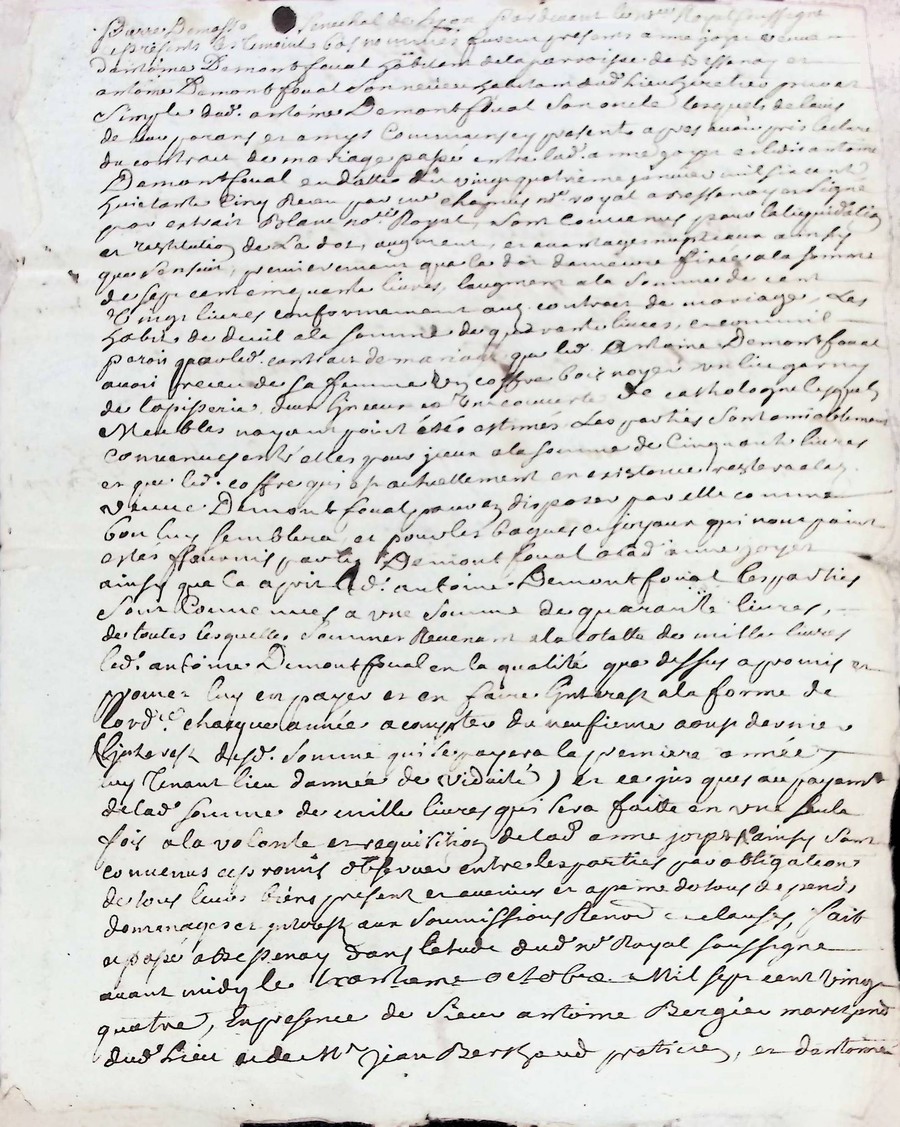 Pierre Demasso Senechal de Lyon Pardevant le no.re Royal soussigne
et presents les temoins bas nommés fusrent presents anne joyet veuve
dantoine Demontfoual habitant de la parroisse de Bessenay et
antoine Demontfoual son neveu habitant dud. lieu heretier pur et
simple dud. antoine Demontfoual son oncle lesquels de lavis
de leurs parans et amys communs cy presents apres avoir pris lecture
du contrat de mariage passé entre lad. anne joyet et led. antoine
Demontfoual en datte du vingt quatrieme janvier mil six cent
huictante cinq Receu par me no.re royal a Bessenay et signé
par extrait Blanc no.re Royal, sont convenus pour la liquidation
et restitution de la dot, augment, et avantages nuptiaux ainsy
que sensuit, premierement que la dot demeure fixée a la somme
de sept cent cinquante livres, laugment a la somme de cent
vingt livres conformement aud. contract de mariage, Les
habits de deuil a la somme de quarante livres, et comme il
parois par led. contrait de mariage que led. Antoine Demontfoual
avoit receu de sa femme un coffre bois noyer un lit garny
de tapisserie et une couverte de cathologne lesquels
Meubles nayant point étés estimés Les parties sont amiablement
convenues entr'elles pour yceux a la somme de Cinquante livres
et que led. coffre qui est actuellement en existance restera a lad.
veuve Demontfoual pour en disposer par elle comme
bon luy semblera, et pour les bagues et joyaux qui nont point
estés fournis par led. Demontfoual a lad. anne joyet
ainsy que la a prit led. antoine Demontfoual les parties
sont Convenues a une somme de quarante livres,
de toutes lesquelles sommes Revenant a la totalle de mille livres
led. antoine Demontfoual en la qualité que dessus a promis et
promet luy en payer et en faire l'interest a la forme de
lord.ce chacque année a compter du neufieme aoust dernier
(linterest desd. somme qui se payera la premiere année
luy Tenant lieu dannée de viduité) et ce jusques au payem.t
de lad. somme de mille livres qui sera faitte en une seule
fois a la volonte et requisition de lad. anne joyet, ainsy sont
convenus et promis observer entre les parties par obligation
de tous leurs biens present et avenirs et a peine de tous depends
domages et interest aux soumissions Renon.on et clauses, fait
et passé a Bessenay dans letude dud. no.re Royal soussigne
avant midy le trentieme octobre Mil sept cent vingt
quatre, En presence de sieur antoine Bergier marchand
dud. Lieu et de M.re jean Berthaud praticien, et dantoine